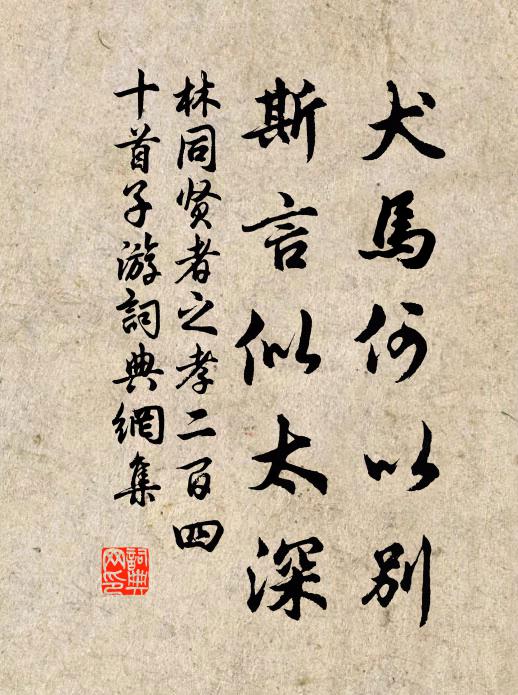 犬馬何以別
斯言似太深
林同贤者之孝二百四
十首子游詞典網集
詞典网印